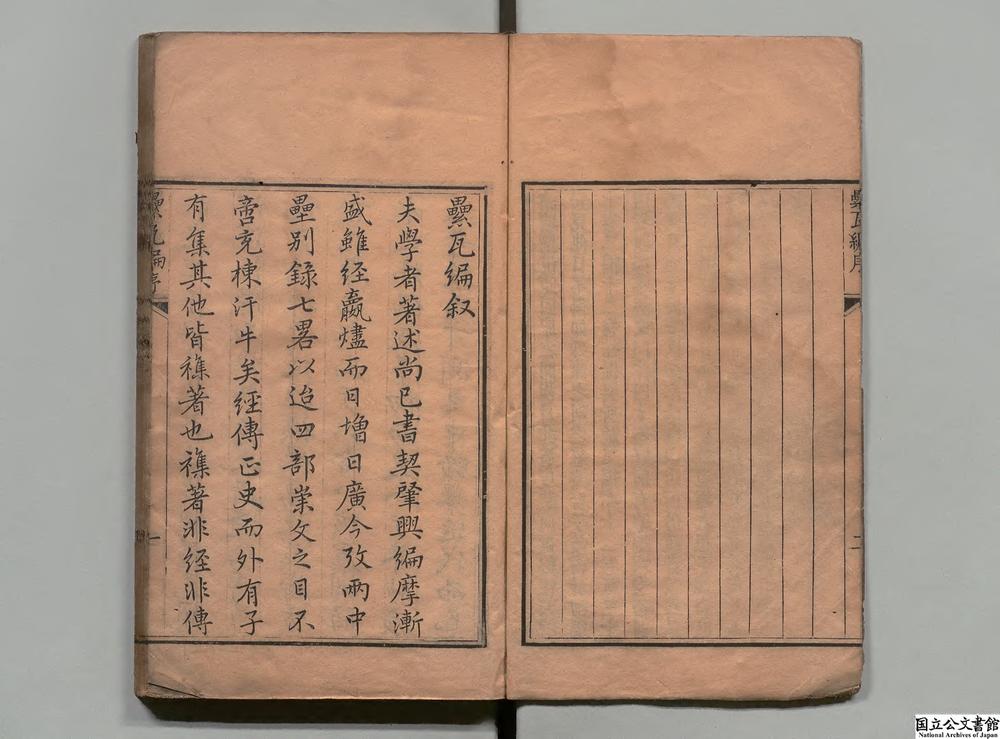 纍瓦編序
二
纍瓦編叙
夫學者著述尚已書契肇興編摩漸
盛雖经嬴燼而日增日廣今攷兩中
壘别錄七畧以迨四部崇文之目不
啻充棟汗牛矣經傳正史而外有子
有集其他皆襍著也襍著非経非傳
纍瓦編序
一
国立公文書館
National Archives of Japan